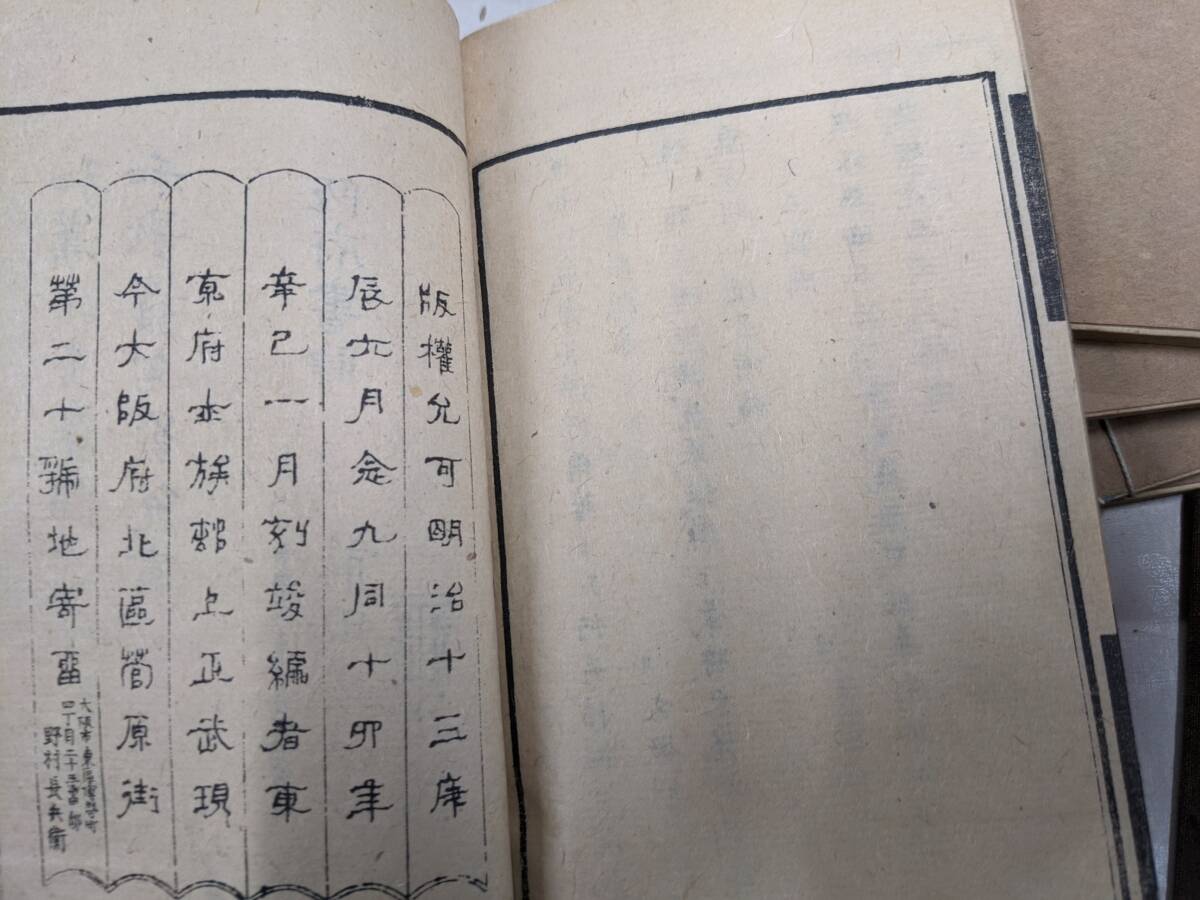 版權允可明治十三庚
辰六月念九同十四年
辛巳一月刻竣編者東
京府士族邨上正武現
今大阪府北區菅原街
第二十號地寄畱
大阪市東區博勞町
四丁目二十三番邸
野村長兵衛